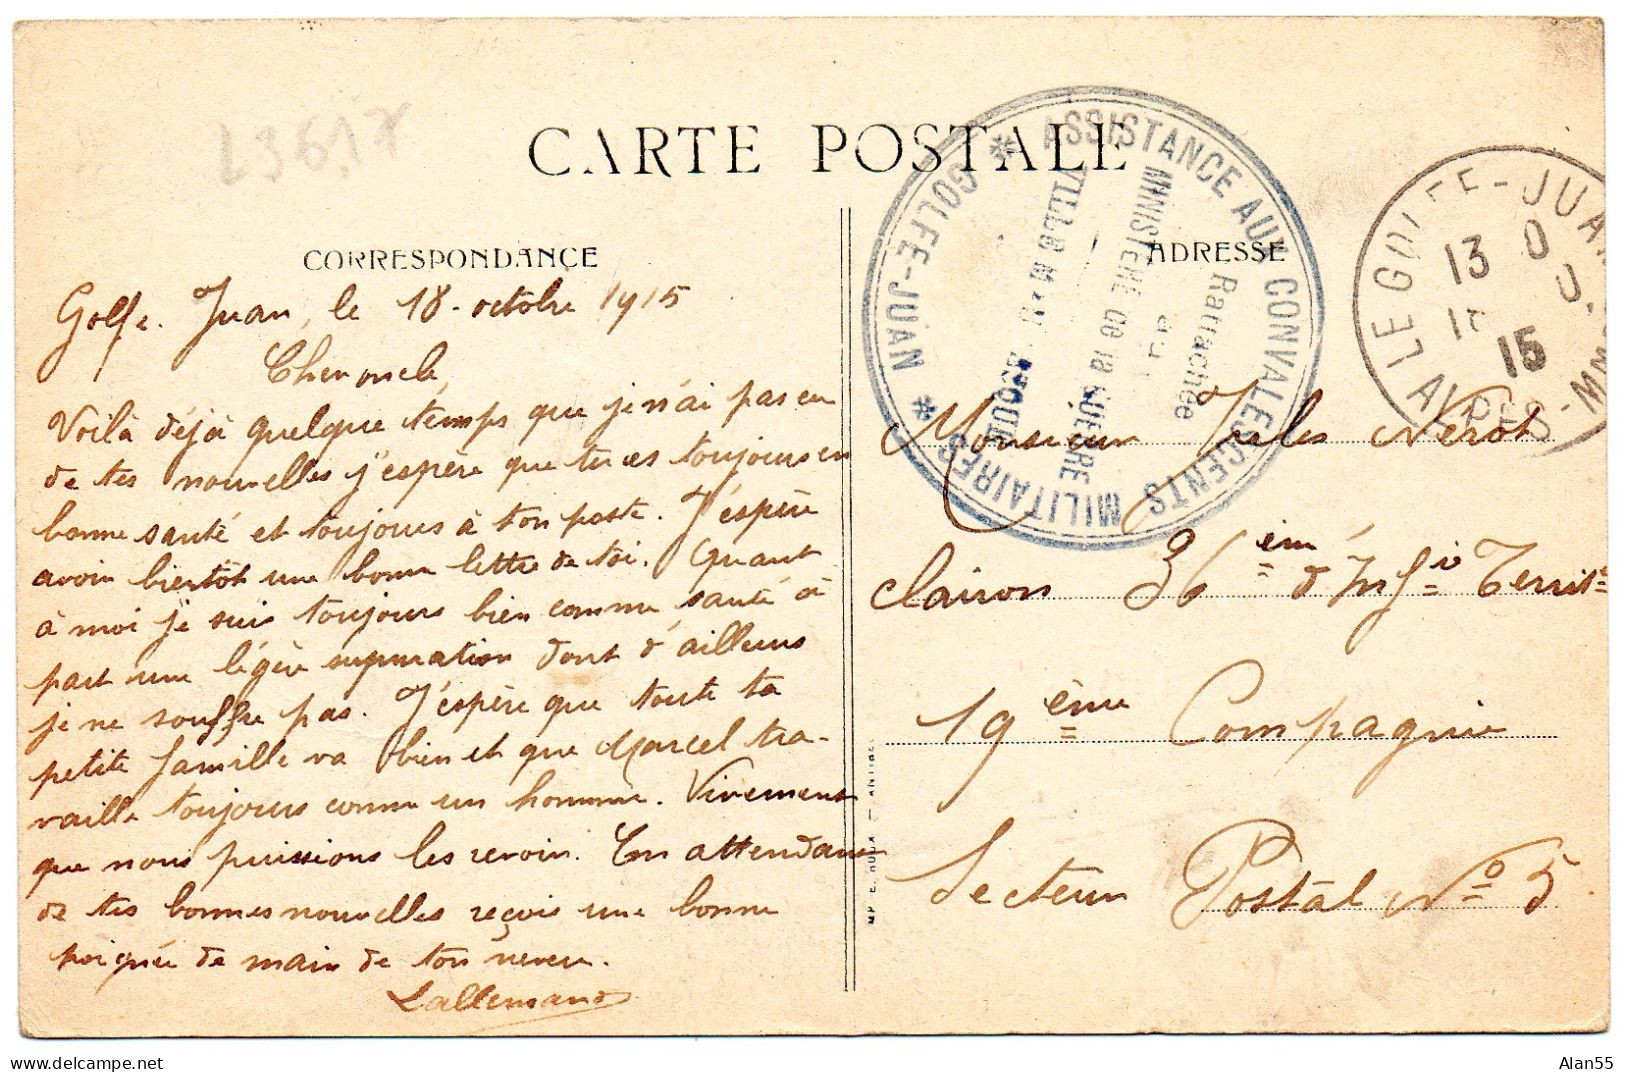 CARTE POSTALE
CORRESPONDANCE
ADRESSE
Golfe. Juan, le 18. octobre 1915
Cher oncle,
Voilà déjà quelque temps que je n'ai pas eu
de tes nouvelles j'espère que tu es toujours en
bonne santé et toujours à ton poste. J'espère
avoir bientôt une bonne lettre de toi. Quant
à moi je suis toujours bien comme santé à
part une légère suppuration dont d'ailleurs
je ne souffre pas. J'espère que toute ta
petite famille va bien et que Marcel tra-
vaille toujours comme un homme. Vivement
que nous puissions les revoir. En attendant
de tes bonnes nouvelles reçois une bonne
poignée de main de ton neveu.
Lallemand
Monsieur Jules Nérot
clairon 36ème d'Inf.ie Territ.
19ème Compagnie
Secteur Postal No 5
* ASSISTANCE AUX CONVALESCENTS MILITAIRES * GOLFE-JUAN
Rattachée
au
MINISTERE DE la GUERRE
LE GOLFE-JUAN
13
15
ALPES-M
Alan55